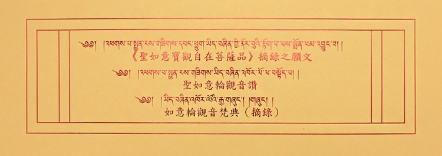 ༄༅། །འཕགས་པ་སྤྱན་རས་གཟིགས་དབང་ཕྱུག་ཡིད་བཞིན་གྱི་ནོར་བུའི་
《聖如意寶觀自在菩薩品》摘錄之願文
༄༅། །འཕགས་པ་སྤྱན་རས་གཟིགས་ཡིད་བཞིན་འཁོར་ལོ་ལ་བསྟོད་པ།
聖如意輪觀音讚
༄༅། །ཡིད་བཞིན་འཁོར་ལོའི་རྒྱ་གཞུང་། །གཞུང་།
如意輪觀音梵典（摘錄）